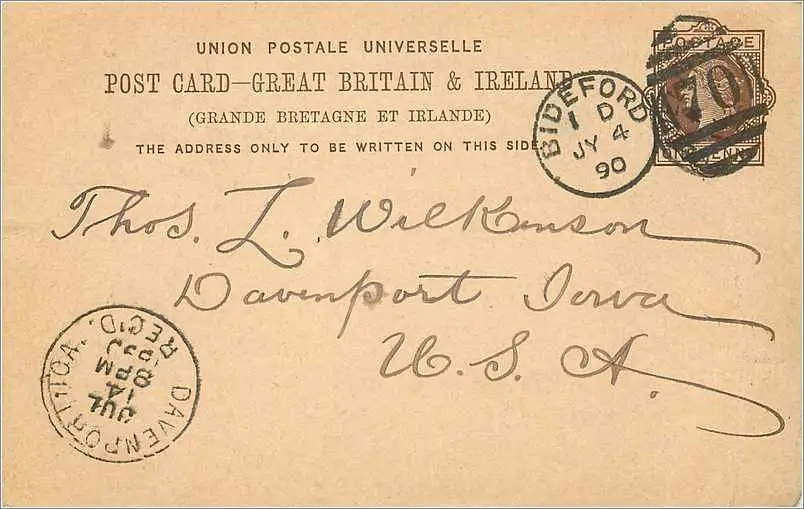 UNION POSTALE UNIVERSELLE
POST CARD—GREAT BRITAIN & IRELAND
(GRANDE BRETAGNE ET IRLANDE)
THE ADDRESS ONLY TO BE WRITTEN ON THIS SIDE
POSTAGE
70
ONE PENNY
BIDEFORD
1 D
JY 4
90
Thos. L. Wilkinson
Davenport Iowa
U. S. A.
DAVENPORT, IOA.
JUL
14
8 PM
REC'D.